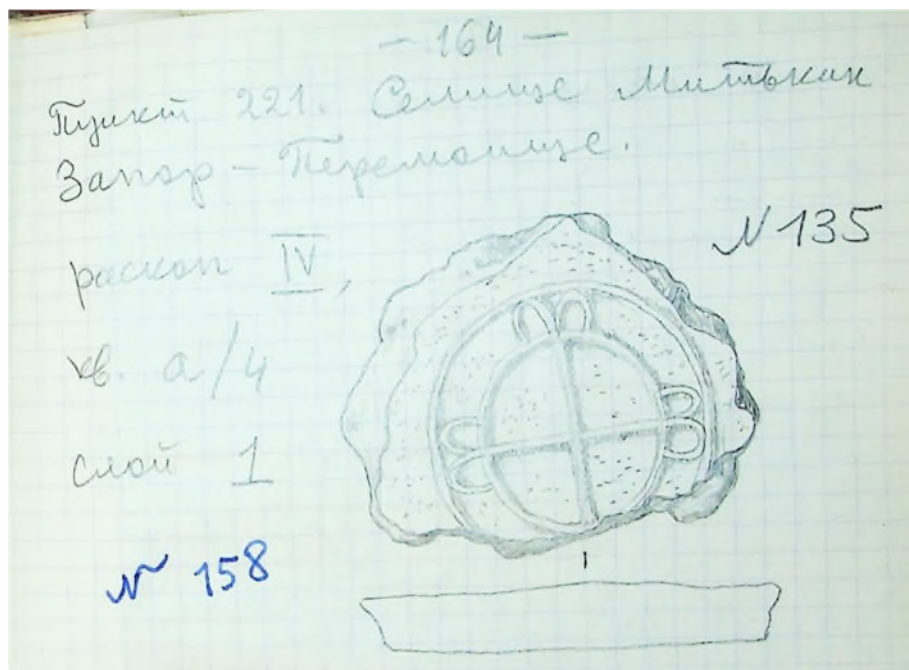 — 164 —
Пункт 221. Селище Митькин
Запор - Перемоище.
раскоп IV,
кв. а/4
слой 1
N 135
N 158